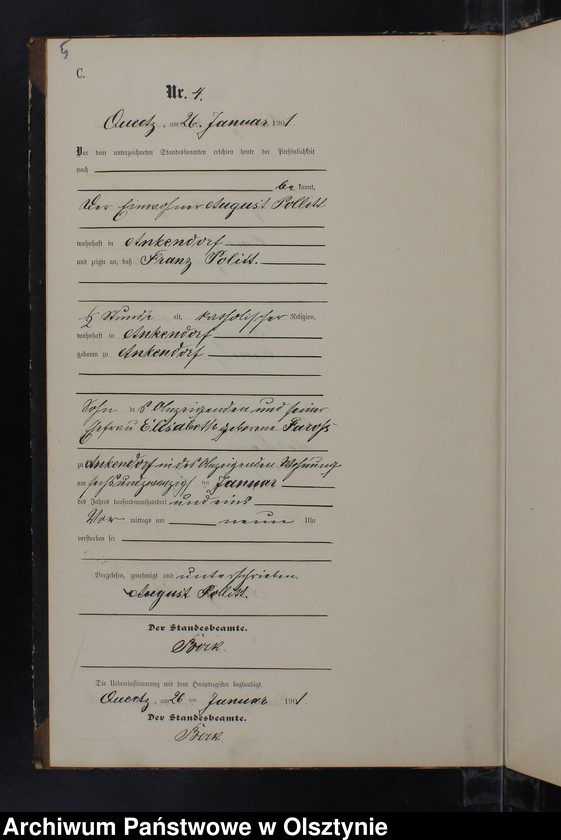 5
C.
Nr. 4.
Queetz, am 26. Januar 1901
Vor dem unterzeichneten Standesbeamten erschien heute der Persönlichkeit
nach
be kannt,
Der Einwohner August Pollett
wohnhaft in Ankendorf
und zeigte an, daß Franz Politt.
½ Stunde alt, katholischer Religion,
wohnhaft in Ankendorf
geboren zu Ankendorf
Sohn des Anzeigenden und seiner
Ehefrau Elisabeth geborne
zu Ankendorf in des Anzeigenden Wohnung
am sechsundzwanzigsten Januar
des Jahres tausendneunhundert und eins
Vor mittags um neun Uhr
verstorben sei
Vorgelesen, genehmigt und unterschrieben.
August Pollett.
Der Standesbeamte.
Böck.
Die Uebereinstimmung mit dem Hauptregister beglaubigt.
Queetz, am 26 ten Januar 1901.
Der Standesbeamte.
Böck.
Archiwum Państwowe w Olsztynie